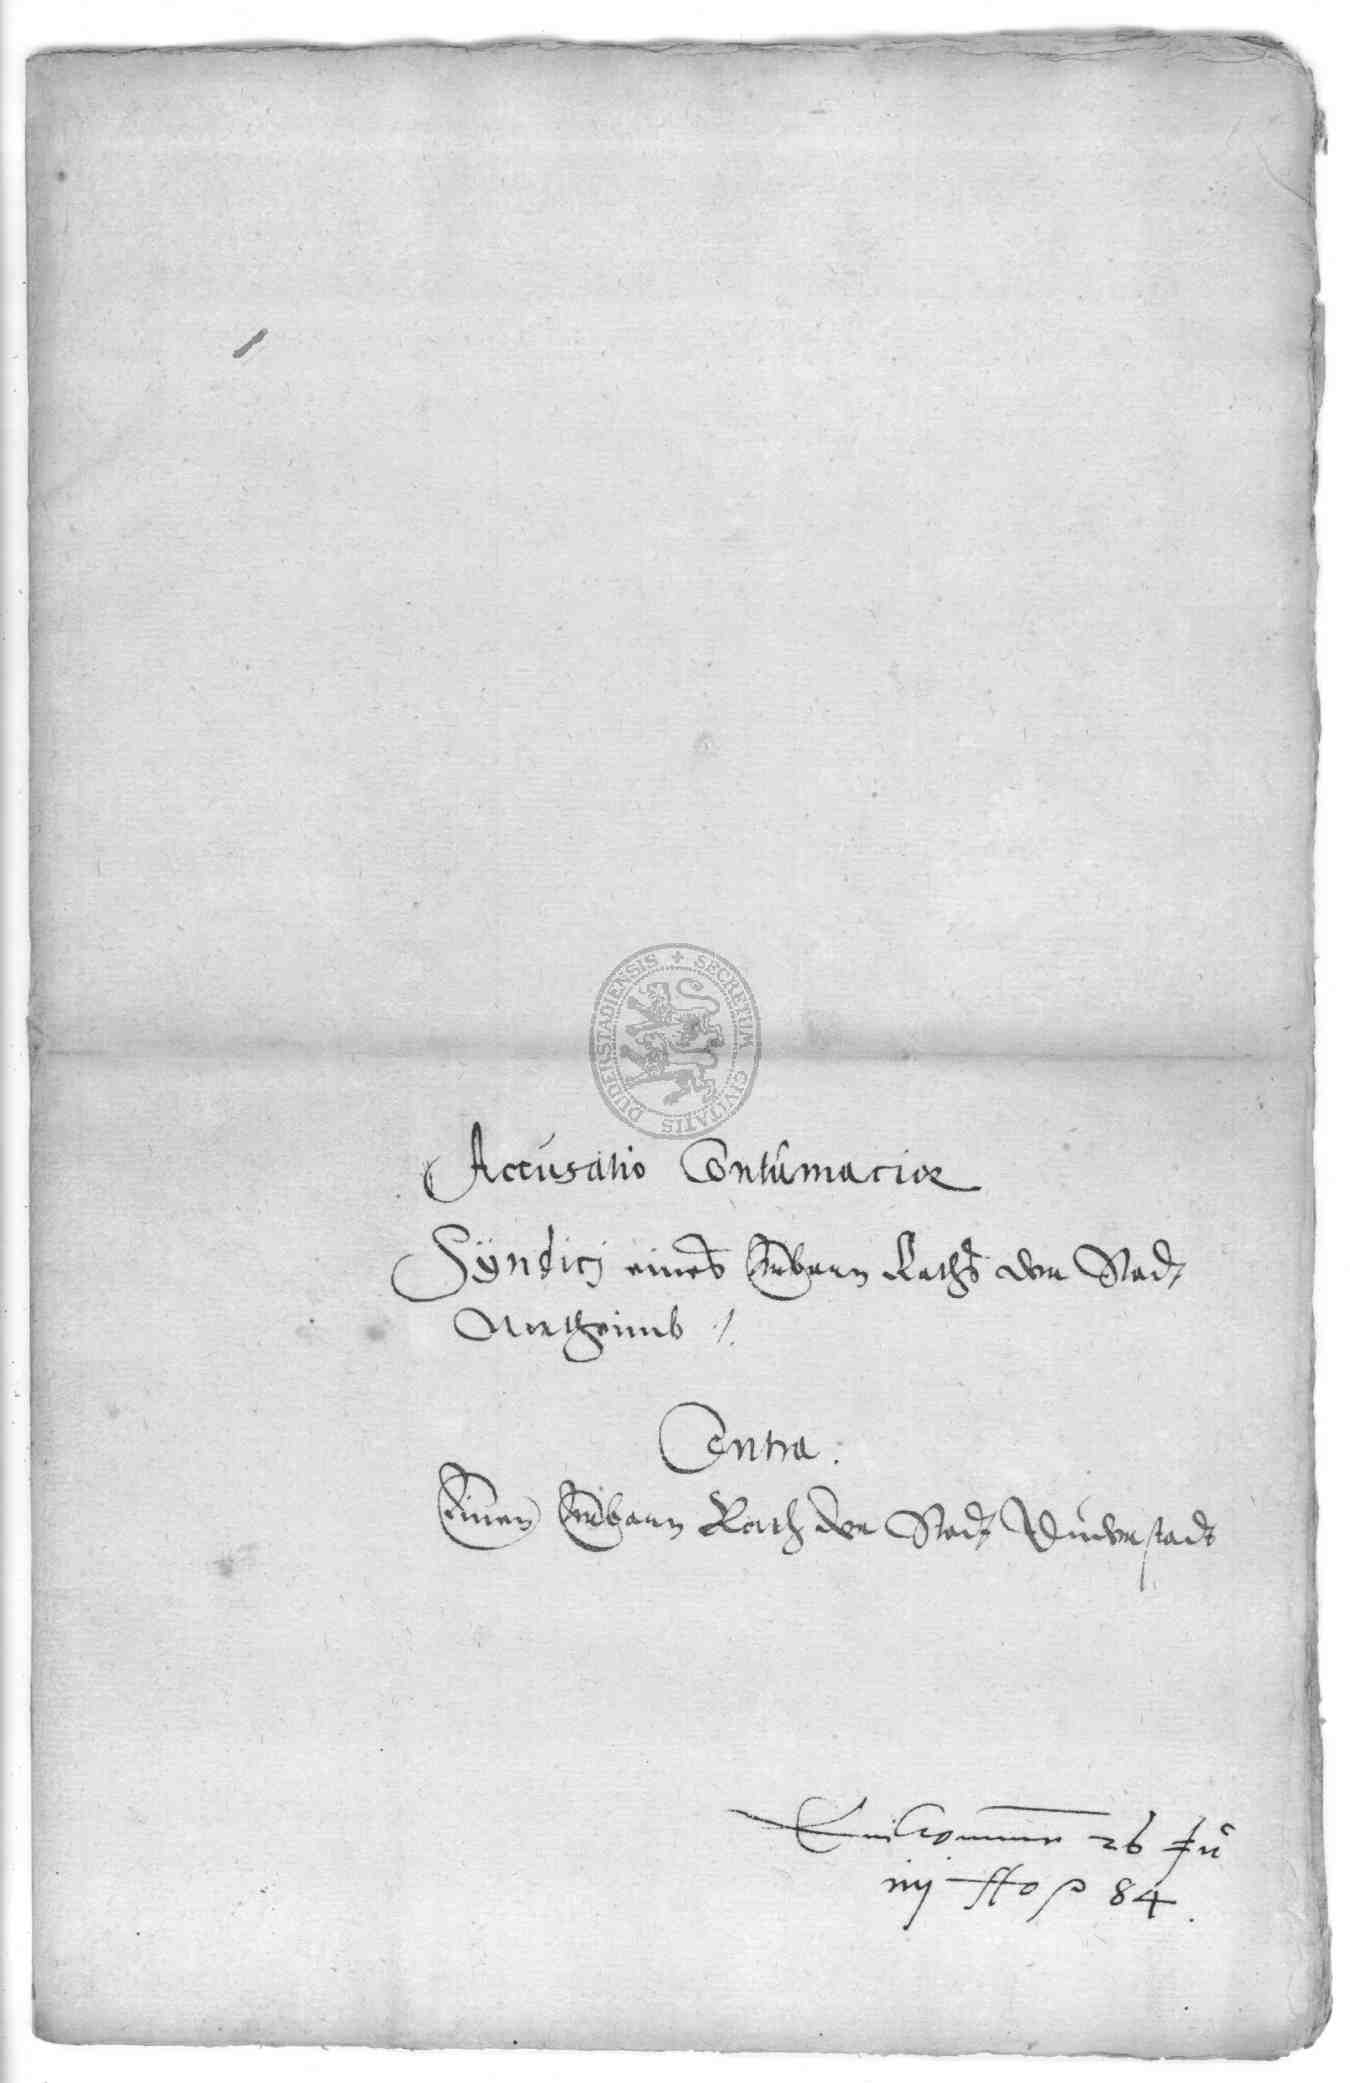 SECRETUM CIVITATIS DUDERSTADIENSIS
Accusatio Contumaciae
Syndicj eines Erbarn Raths der Stad
Northeimb /.
Contra.
Einen Erbarn Rath der Stad Duderstadt
Einkommen 26 Ju
nij 84.